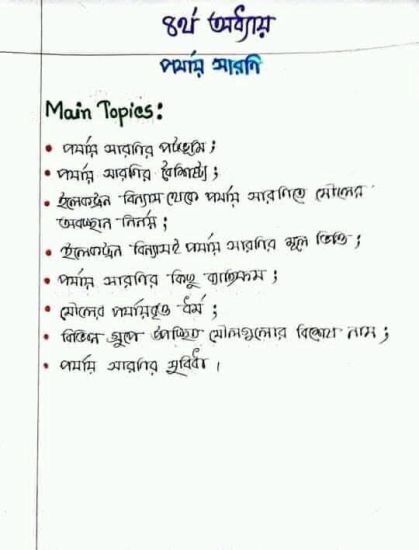 ৪র্থ অধ্যায়
পর্যায় সারণি
Main Topics:
• পর্যায় সারণির পটভূমি ;
• পর্যায় সারণির বৈশিষ্ট্য ;
• ইলেকট্রন বিন্যাস থেকে পর্যায় সারণিতে মৌলের
অবস্থান নির্ণয় ;
• ইলেকট্রন বিন্যাসই পর্যায় সারণির মূল ভিত্তি ;
• পর্যায় সারণির কিছু ব্যতিক্রম ;
• মৌলের পর্যায়বৃত্ত ধর্ম ;
• বিভিন্ন গ্রুপে উপস্থিত মৌলগুলোর বিশেষ নাম ;
• পর্যায় সারণির সুবিধা ।